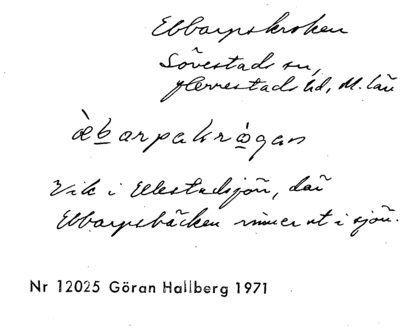 Ebbarpskroken
Sövestads sn,
Herrestads hd, M. län
æ̀b̲arpakrå̲̀gan
Vik i Ellestadsjön, där
Ebbarpsbäcken rinner ut i sjön.
Nr 12025 Göran Hallberg 1971